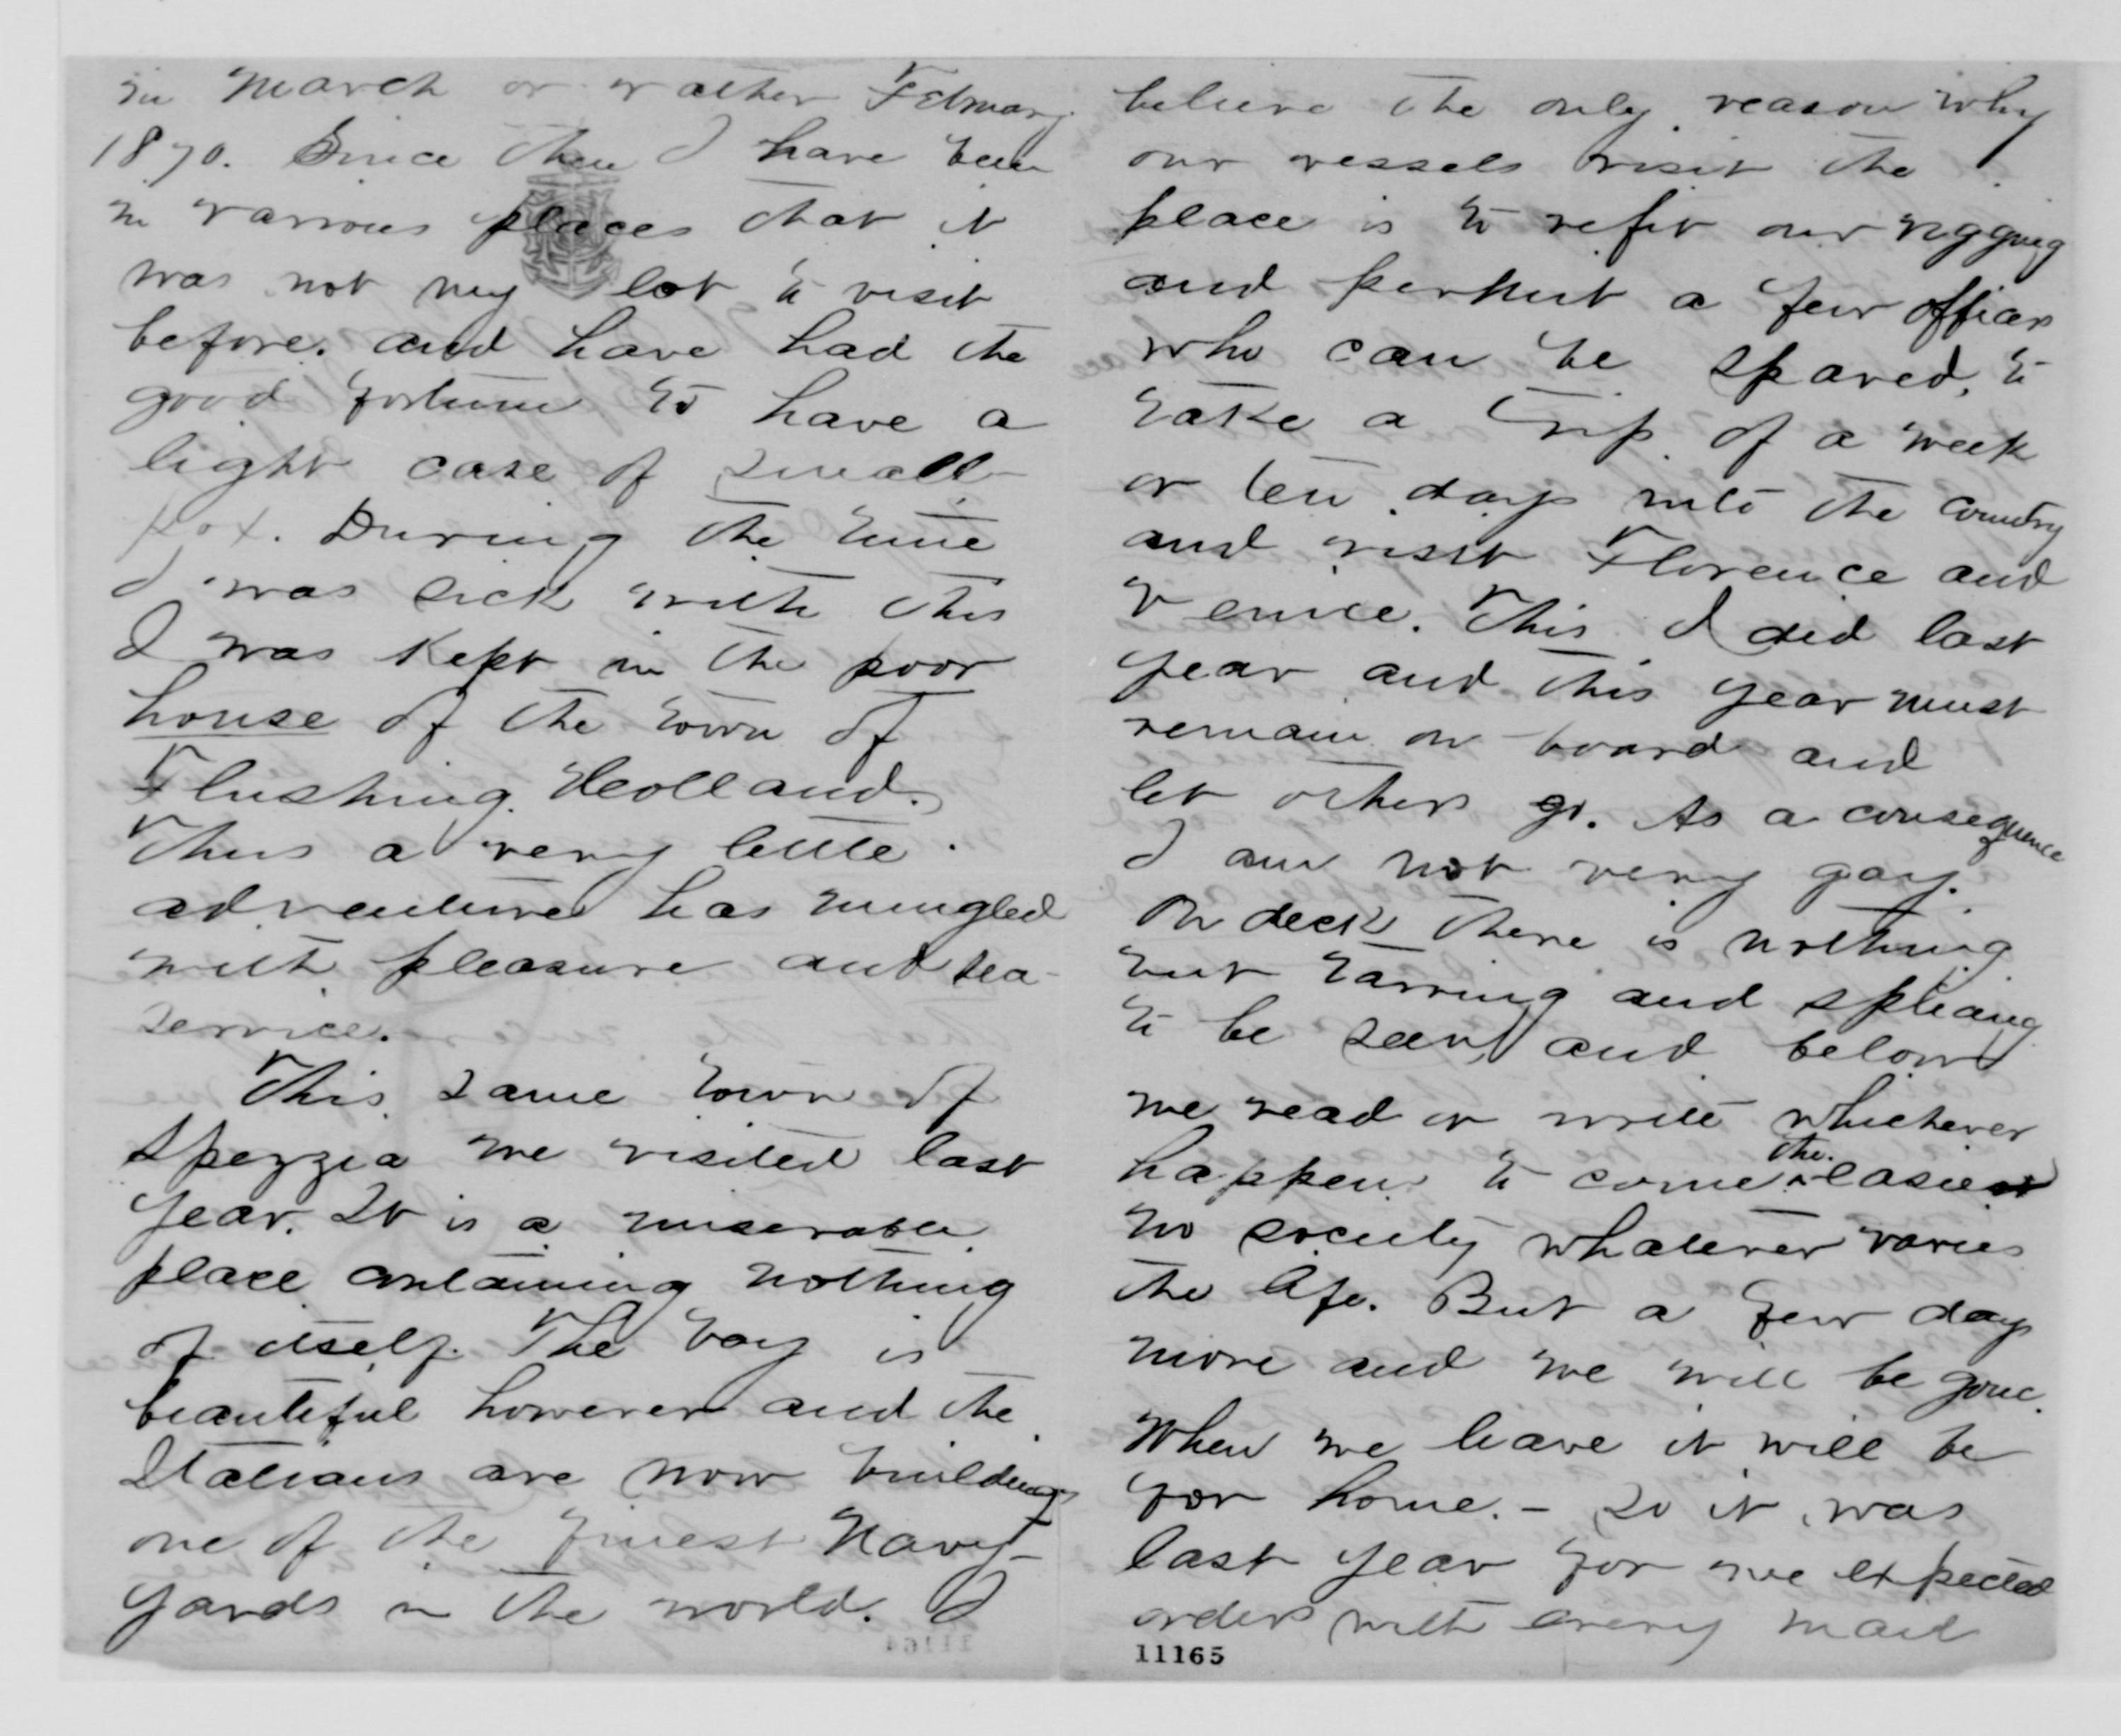 in March or rather February
1870. Since then I have been
in various places that it
was not my lot to visit
before. and have had the
good fortune to have a
light case of small
pox. During the time
I was sick with this
I was kept in the poor
house of the town of
Flushing. Holland.
Thus a very little
adventure has mingled
with pleasure and sea
service.
This same town of
Spezzia we visited last
year. It is a miserable
place containing nothing
of itself. The bay is
beautiful however and the
Italians are now building
one of the finest Navy-
yards in the world. I
believe the only reason why
our vessels visit the
place is to refit our rigging
and permit a few officers
who can be spared, to
take a trip of a week
or ten days into the country
and visit Florence and
Venice. This I did last
year and this year must
remain on board and
let others go. As a consequence
I am not very gay.
On deck there is nothing
but tarring and splicing
to be seen and below
we read or write whichever
happens to come the easiest
No society whatever varies
the life. But a few days
more and we will be gone.
When we leave it will be
for home. - So it was
last year for we expected
orders with every mail
11165